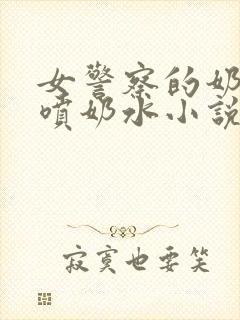 女警察的奶
喷奶水小説
寂寞也要笑